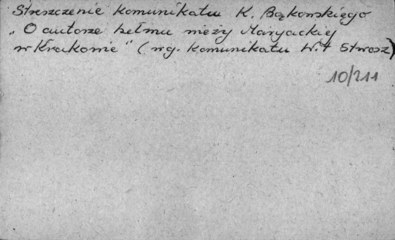 Streszczenie komunikatu K. Bąkowskiego
"O autorze hełmu wieży Maryackiej
w Krakowie" (wg. komunikatu Wit Stwosz)
10/211